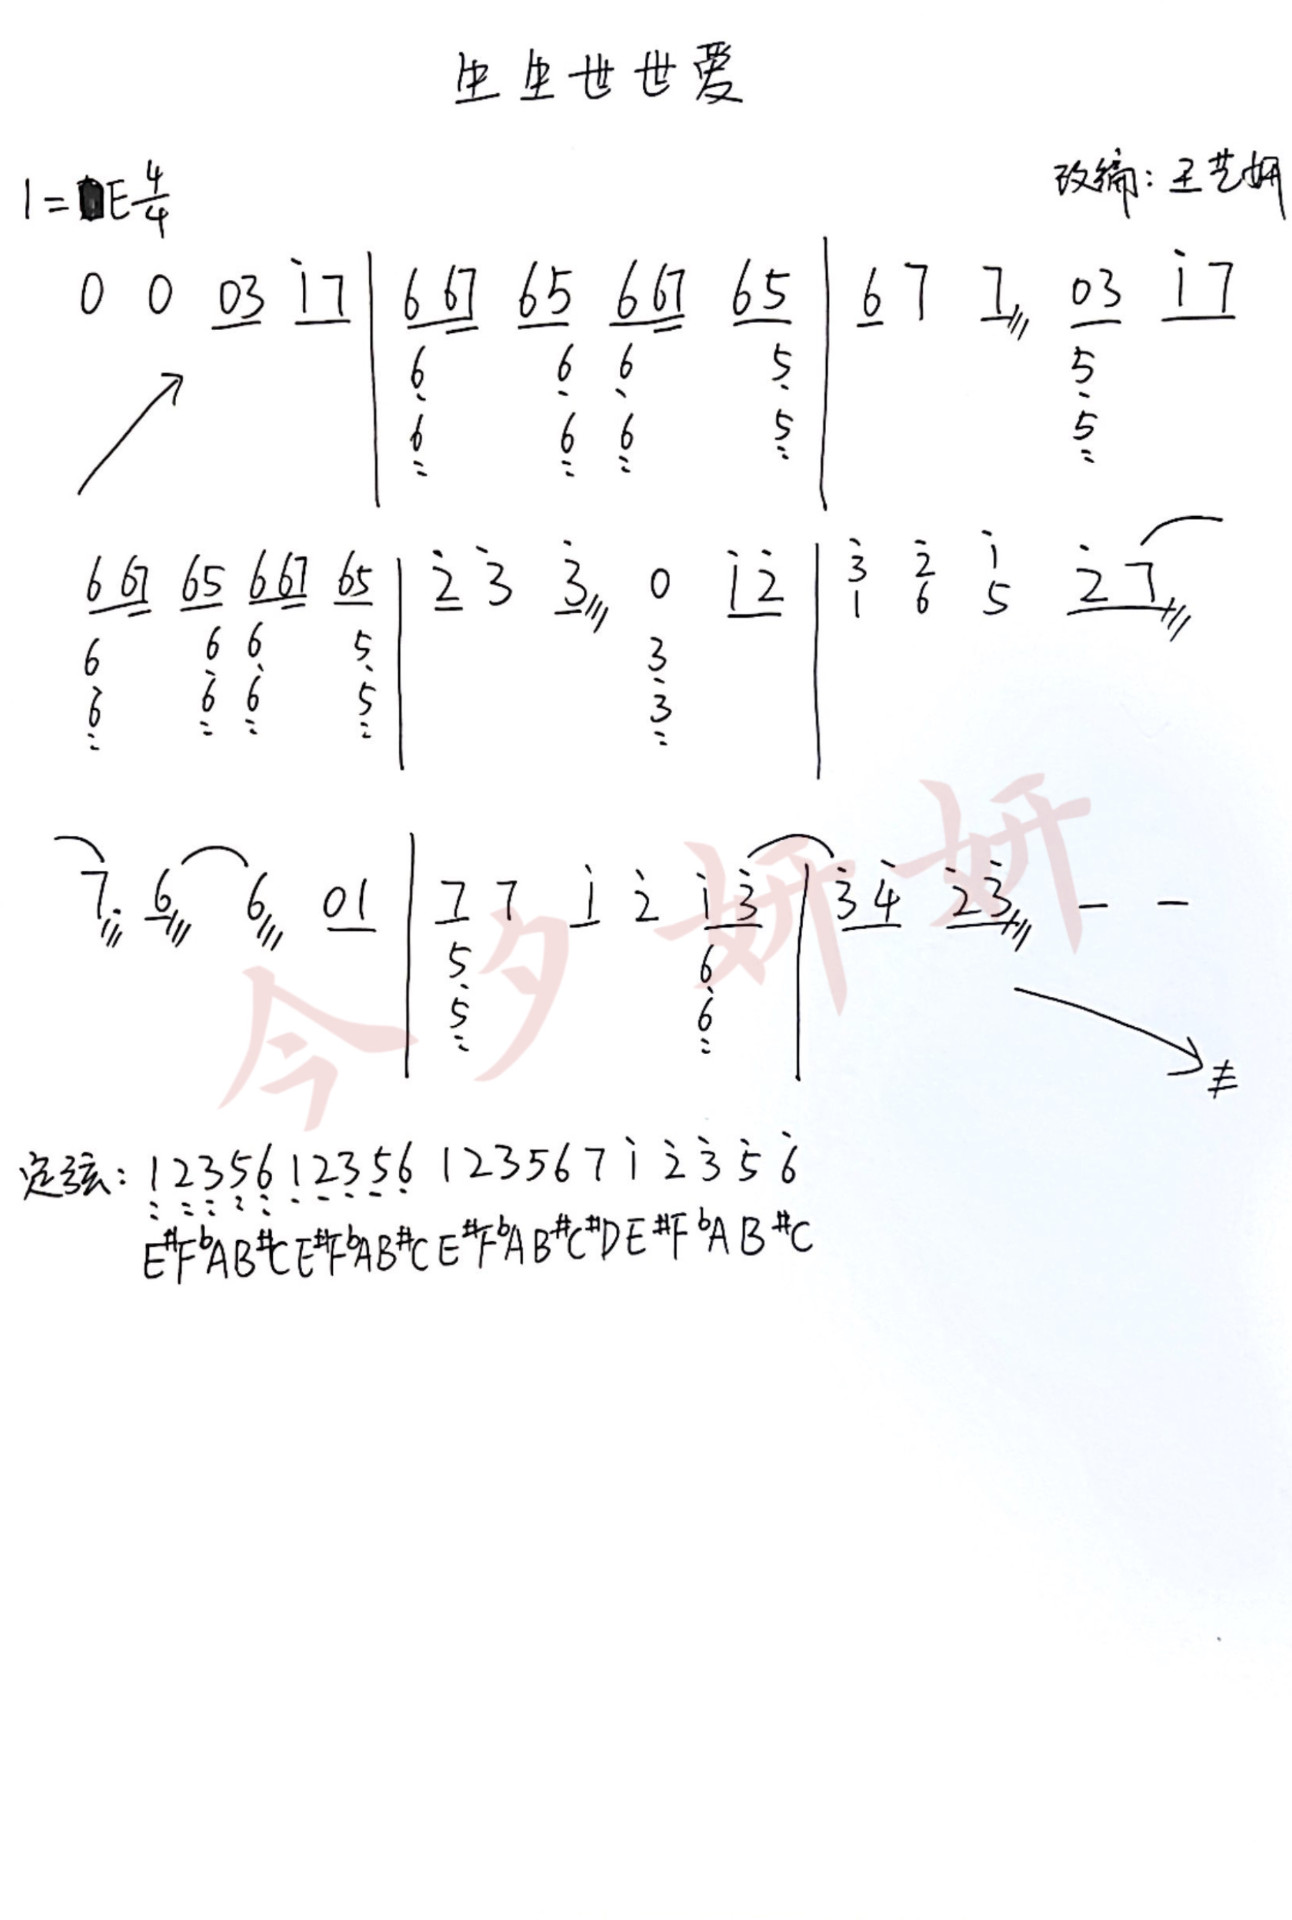 生生世世爱
1=E 4/4
改编：王艺妍
0 0 03 i7 | 6 67 65 6 67 65 | 6 7 7 03 i7
6 6 6 5 5
6 6 6 5 5
6 67 65 6 67 65 | 2̇ 3̇ 3̇ 0 i2̇ | 3̇ 2̇ i 2̇7
1 6 5
6 6 6 5 3
6 6 6 5 3
7· 6 6 01 | 7 7 i 2̇ i3̇ | 3̇4̇ 2̇3̇ - -
5 6
5 6
定弦：1 2 3 5 6 1 2 3 5 6 1 2 3 5 6 7 i 2̇ 3̇ 5̇ 6̇
E #F bA B #C E #F bA B #C E #F bA B #C #D E #F bA B #C
今夕妍妍